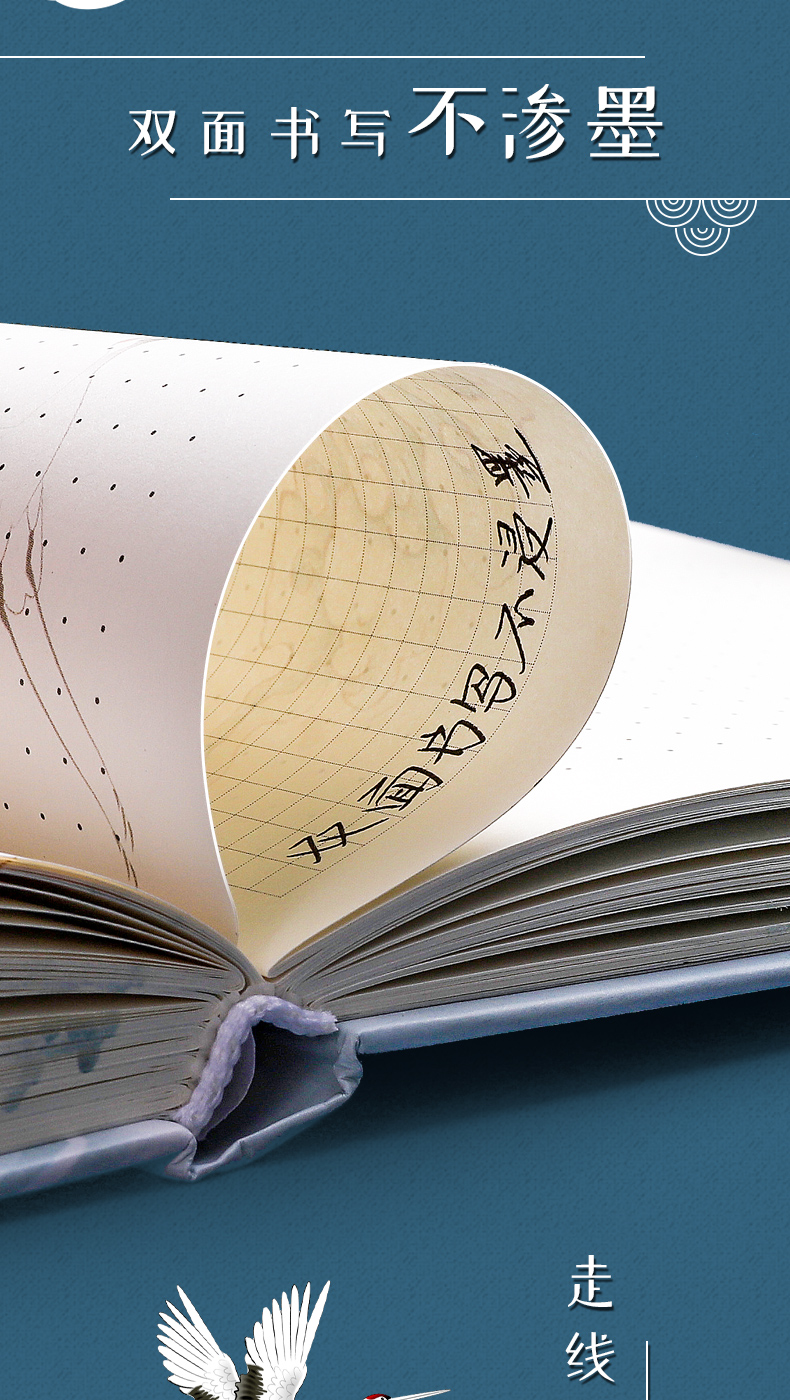 双面书写不渗墨
双面书写不浸墨
走线